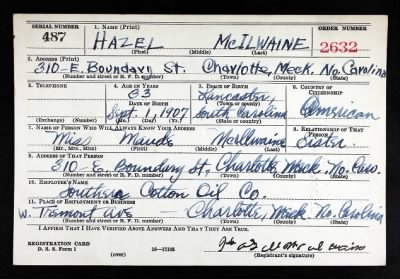 SERIAL NUMBER 1. NAME (Print) ORDER NUMBER
487 HAZEL McILWAINE 2632
(First) (Middle) (Last)
2. ADDRESS (Print)
310-E. Boundary St. Charlotte, Meck. No. Carolina
(Number and street or R. F. D. number) (Town) (County) (State)
3. TELEPHONE 4. AGE IN YEARS 5. PLACE OF BIRTH 6. COUNTRY OF CITIZENSHIP
33 Lancaster,
DATE OF BIRTH (Town or county)
Sept. 1, 1907 South Carolina American
(Exchange) (Number) (Mo.) (Day) (Yr.) (State or country)
7. NAME OF PERSON WHO WILL ALWAYS KNOW YOUR ADDRESS 8. RELATIONSHIP OF THAT PERSON
Miss Maude McIlwaine Sister
(Mr., Mrs., Miss) (First) (Middle) (Last)
9. ADDRESS OF THAT PERSON
310-E. Boundary St, Charlotte Meck. No. Caro.
(Number and street or R. F. D. number) (Town) (County) (State)
10. EMPLOYER'S NAME
Southern Cotton Oil Co.
11. PLACE OF EMPLOYMENT OR BUSINESS
W. Tremont Ave Charlotte, Meck. No. Carolina
(Number and street or R. F. D. number) (Town) (County) (State)
I AFFIRM THAT I HAVE VERIFIED ABOVE ANSWERS AND THAT THEY ARE TRUE.
REGISTRATION CARD
D. S. S. Form 1 16-17105
(over) (Registrant's signature)